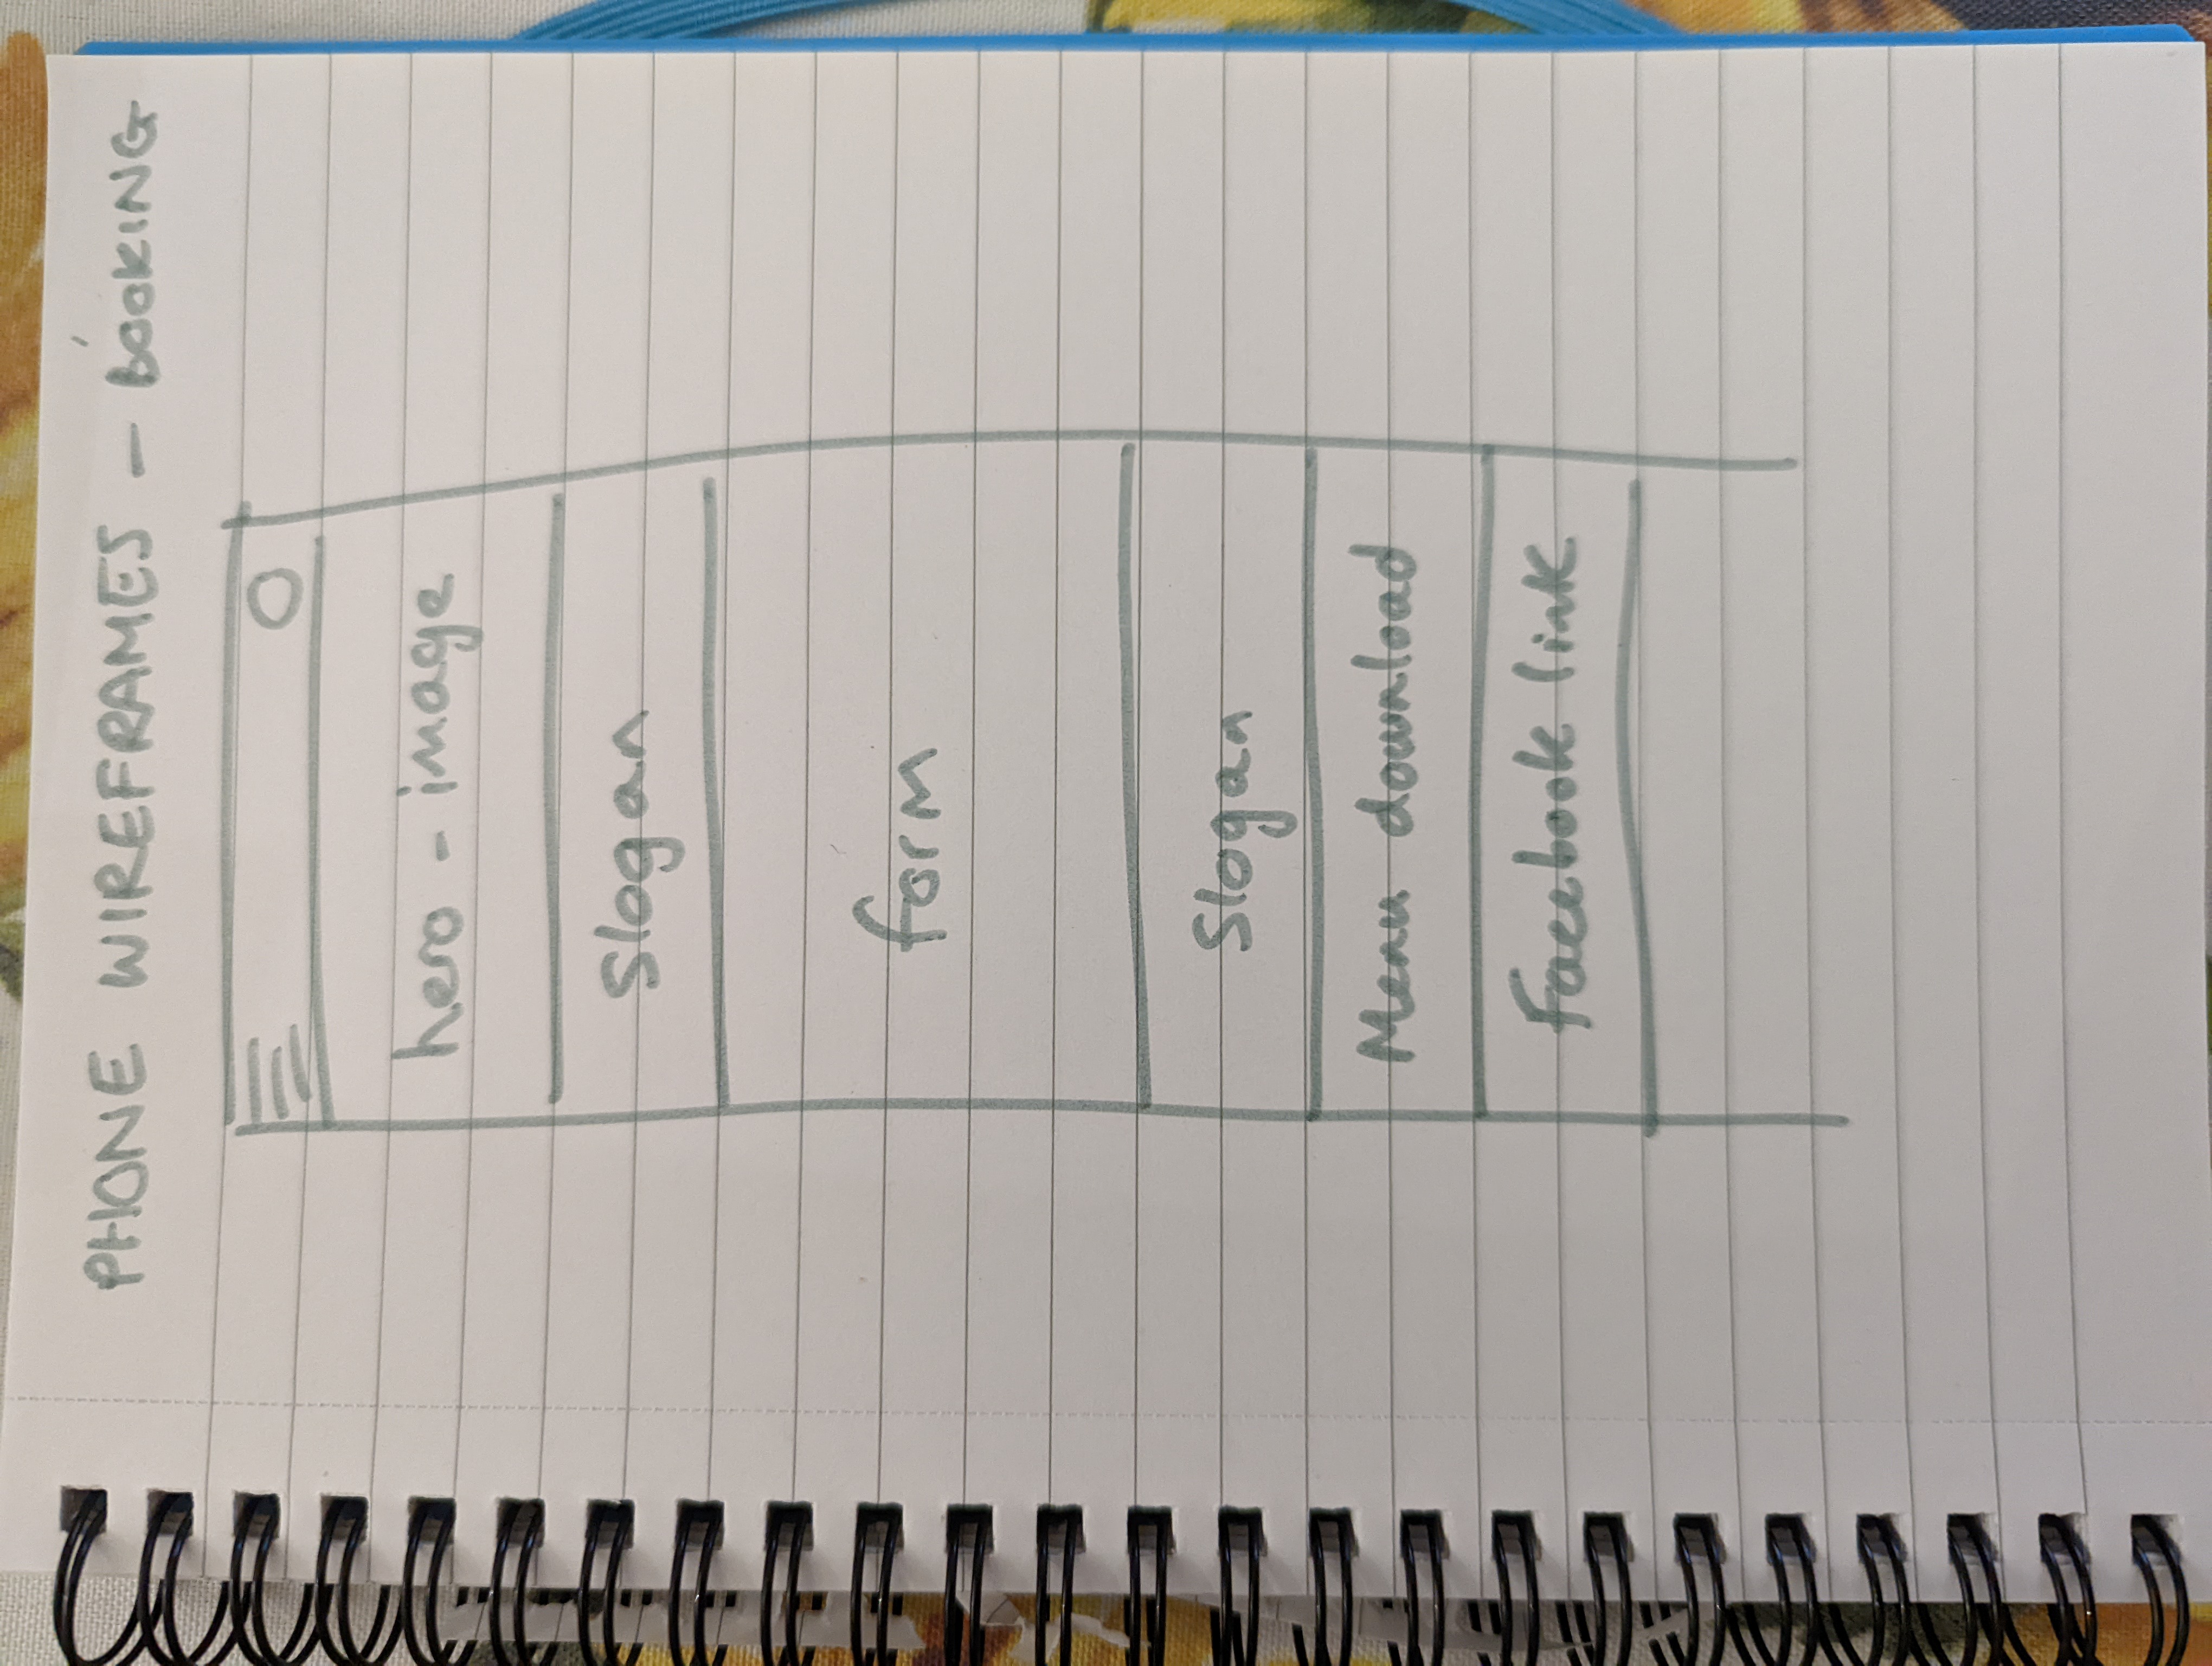 PHONE WIREFRAMES - BOOKING
hero - image
Slogan
form
Slogan
Menu download
Facebook link